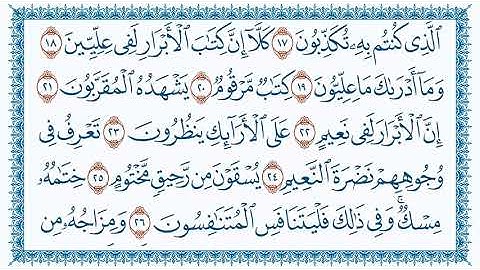 الَّذِى كُنتُم بِهِۦ تُكَذِّبُونَ ١٧ كَلَّآ إِنَّ كِتَٰبَ ٱلْأَبْرَارِ لَفِى عِلِّيِّينَ ١٨
وَمَآ أَدْرَىٰكَ مَا عِلِّيُّونَ ١٩ كِتَٰبٌ مَّرْقُومٌ ٢٠ يَشْهَدُهُ ٱلْمُقَرَّبُونَ ٢١
إِنَّ ٱلْأَبْرَارَ لَفِى نَعِيمٍ ٢٢ عَلَى ٱلْأَرَآئِكِ يَنظُرُونَ ٢٣ تَعْرِفُ فِى
وُجُوهِهِمْ نَضْرَةَ ٱلنَّعِيمِ ٢٤ يُسْقَوْنَ مِن رَّحِيقٍ مَّخْتُومٍ ٢٥ خِتَٰمُهُۥ
مِسْكٌ ۚ وَفِى ذَٰلِكَ فَلْيَتَنَافَسِ ٱلْمُتَنَٰفِسُونَ ٢٦ وَمِزَاجُهُۥ مِن